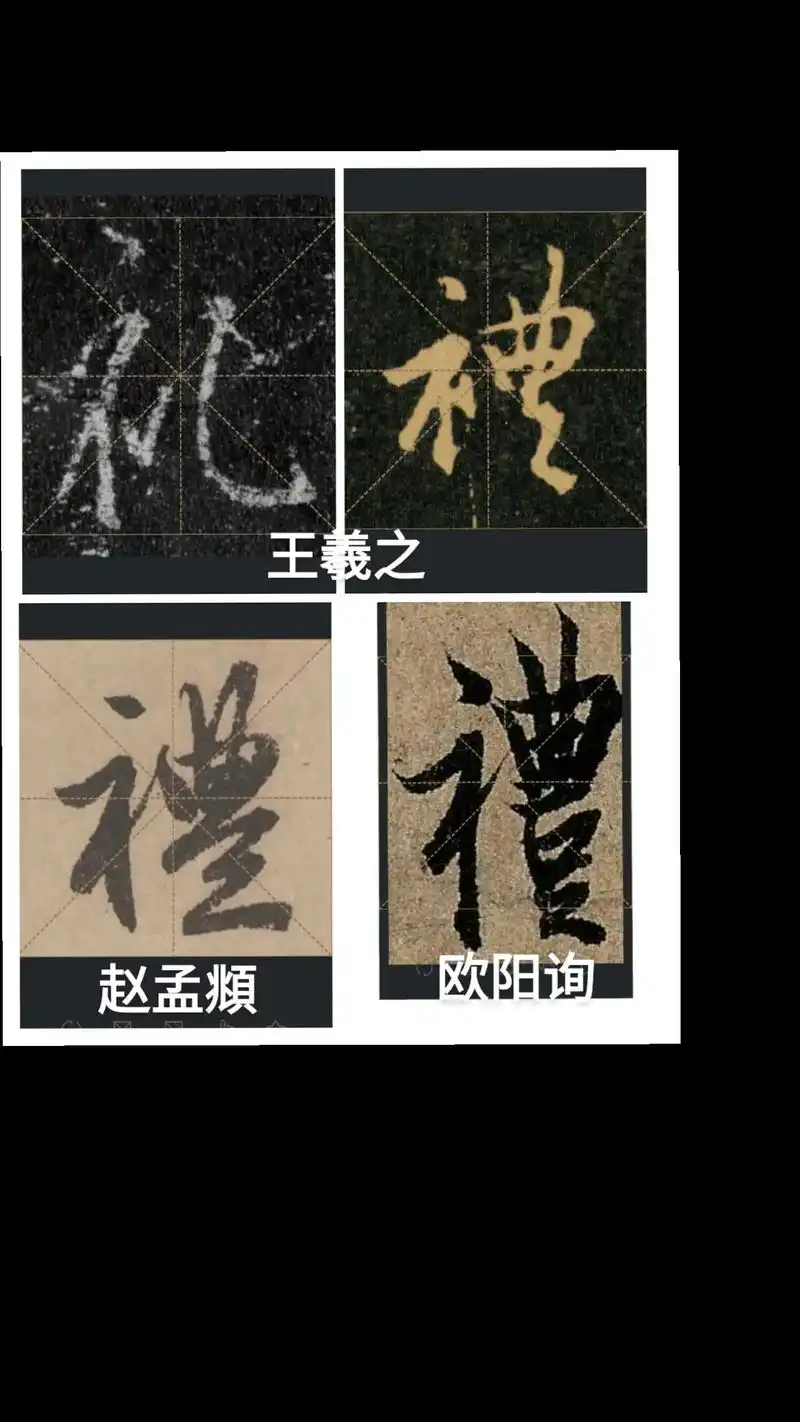 礼 禮
王羲之
禮 禮
赵孟頫 欧阳询